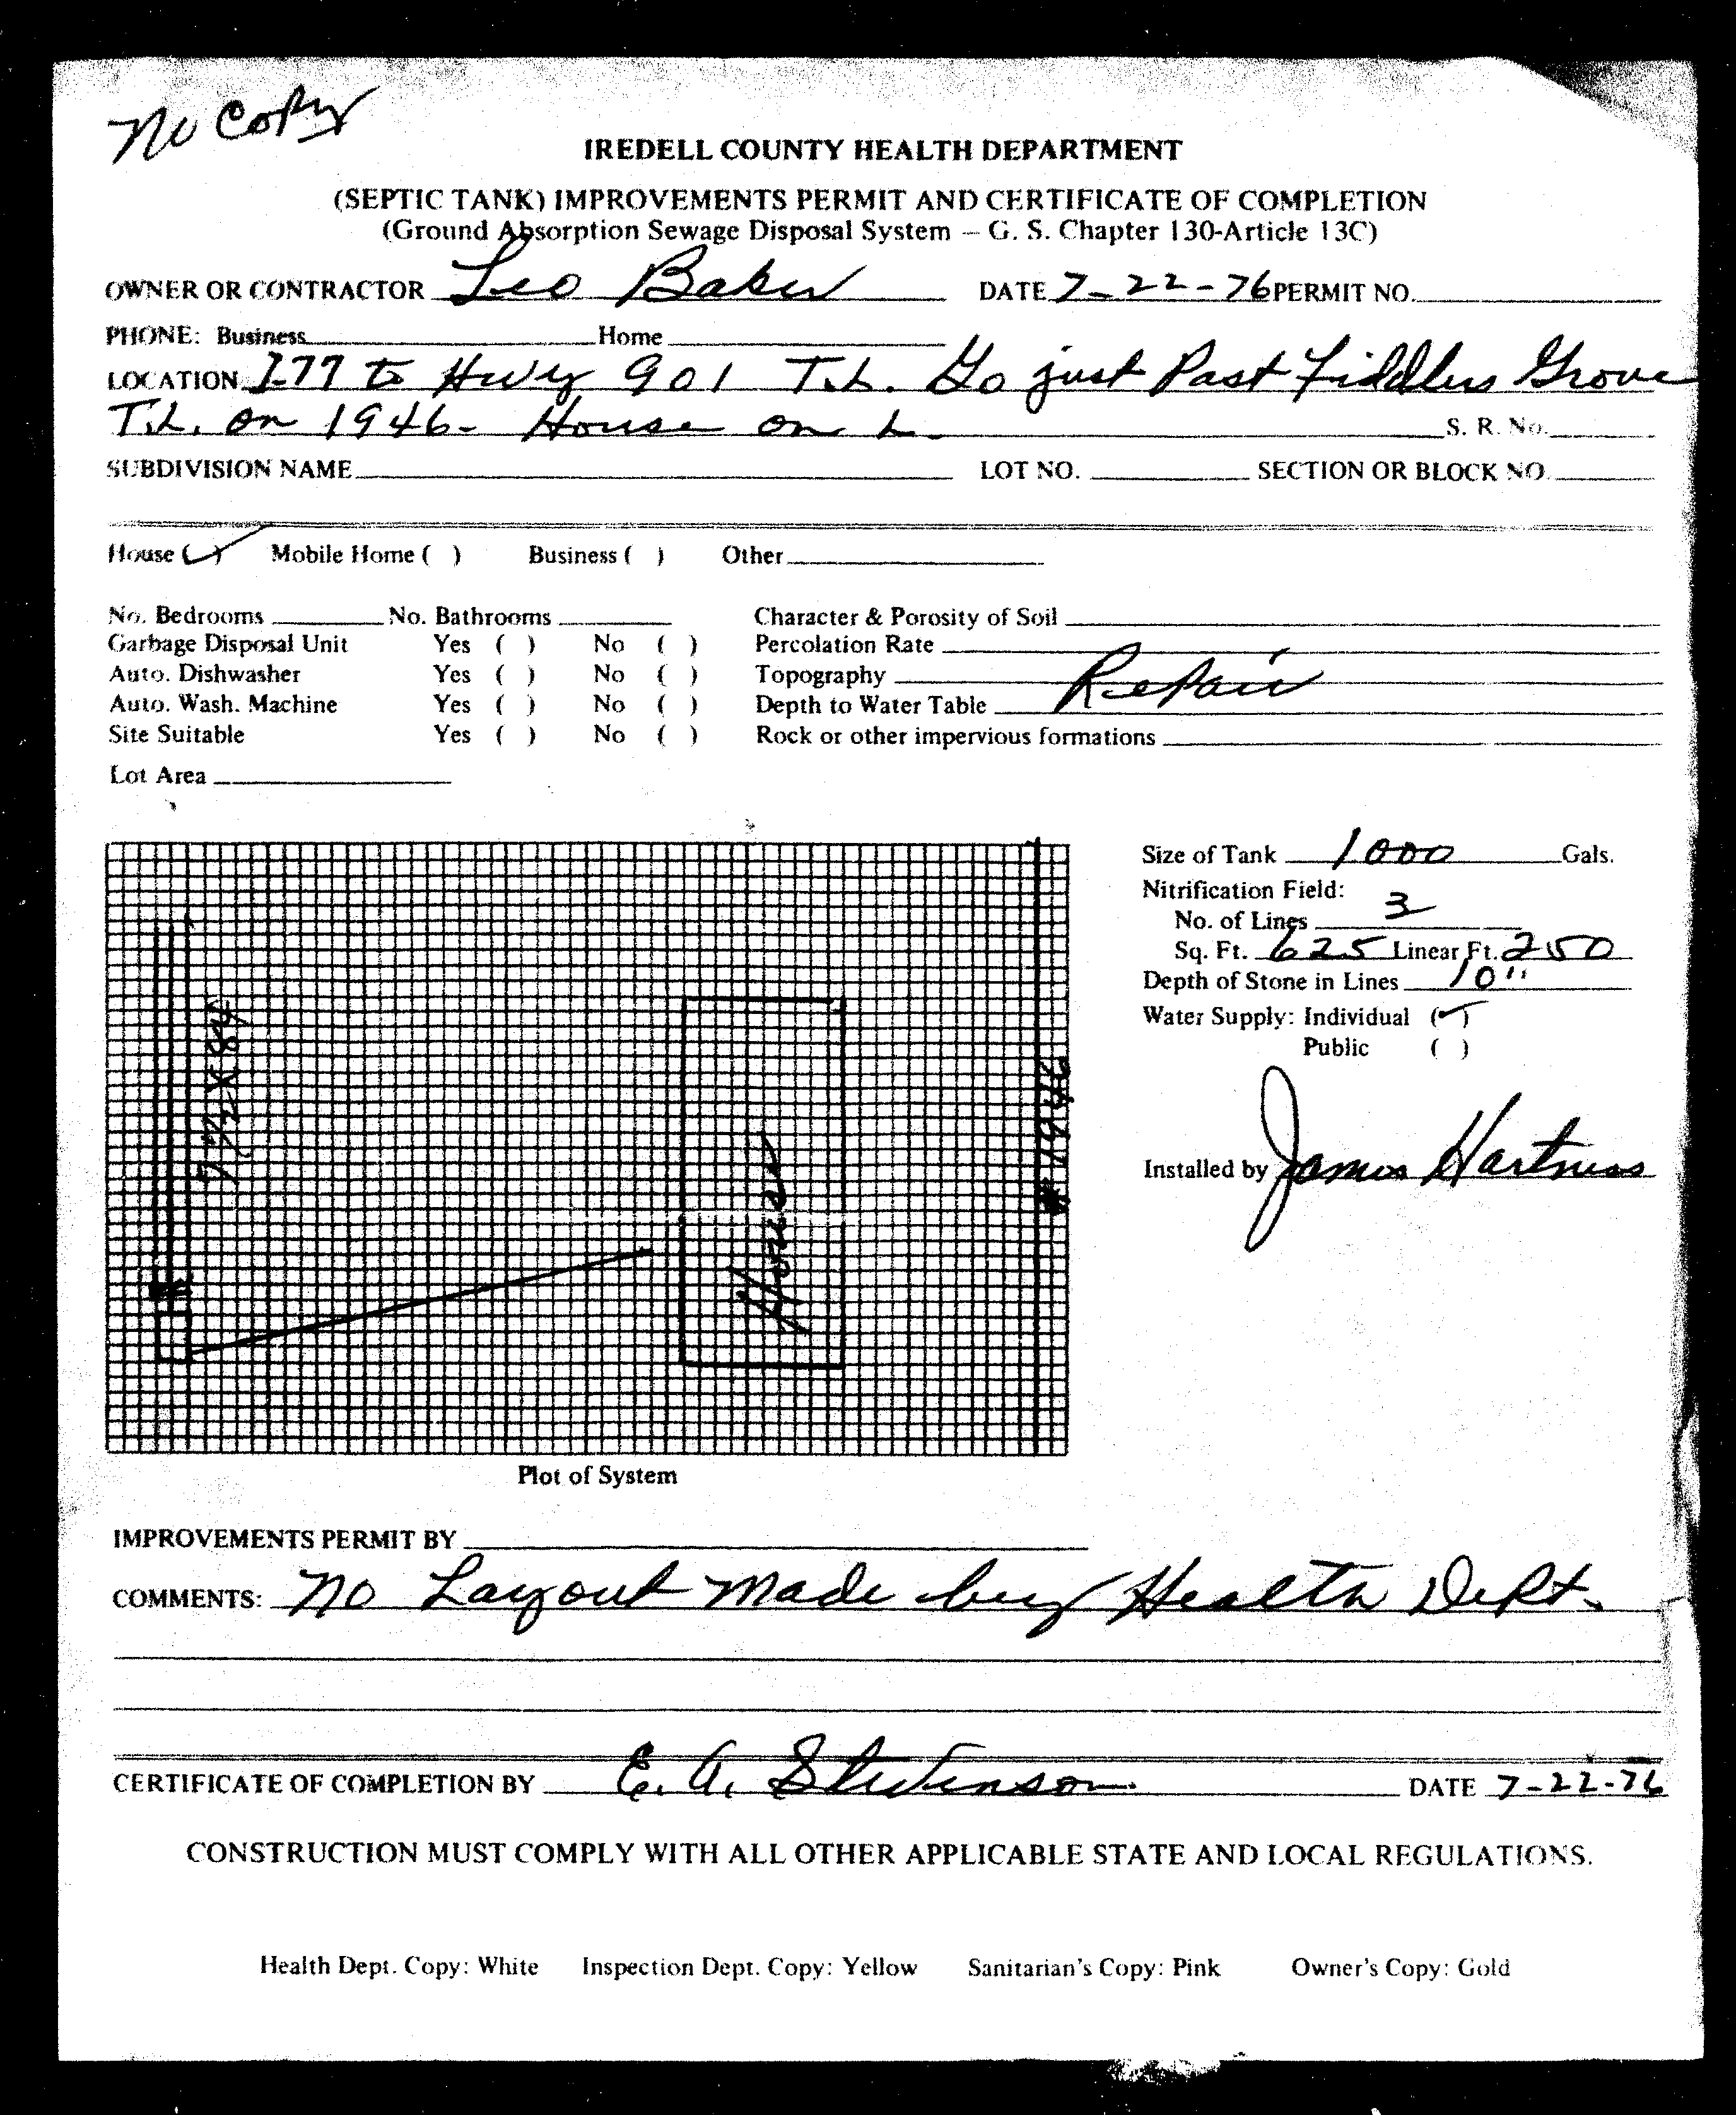 No Copy
IREDELL COUNTY HEALTH DEPARTMENT
(SEPTIC TANK) IMPROVEMENTS PERMIT AND CERTIFICATE OF COMPLETION
(Ground Absorption Sewage Disposal System – G. S. Chapter 130-Article 13C)
OWNER OR CONTRACTOR Leo Baker DATE 7-22-76 PERMIT NO.
PHONE: Business Home
LOCATION I-77 to Hwy 901 T.L. Go just Past Fiddlers Grove
T.L. on 1946- House on L. S. R. No.
SUBDIVISION NAME LOT NO. SECTION OR BLOCK NO.
House (✓) Mobile Home ( ) Business ( ) Other
No. Bedrooms No. Bathrooms Character & Porosity of Soil
Garbage Disposal Unit Yes ( ) No ( ) Percolation Rate
Auto. Dishwasher Yes ( ) No ( ) Topography Repair
Auto. Wash. Machine Yes ( ) No ( ) Depth to Water Table
Site Suitable Yes ( ) No ( ) Rock or other impervious formations
Lot Area
Size of Tank 1000 Gals.
Nitrification Field:
No. of Lines 3
Sq. Ft. 625 Linear Ft. 250
Depth of Stone in Lines 10"
Water Supply: Individual (✓)
Public ( )
Installed by James Hartness
7 1/2 X 84
House
# 1946
Plot of System
IMPROVEMENTS PERMIT BY
COMMENTS: No Layout Made by Health Dept.
CERTIFICATE OF COMPLETION BY E. A. Stevenson DATE 7-22-76
CONSTRUCTION MUST COMPLY WITH ALL OTHER APPLICABLE STATE AND LOCAL REGULATIONS.
Health Dept. Copy: White Inspection Dept. Copy: Yellow Sanitarian's Copy: Pink Owner's Copy: Gold